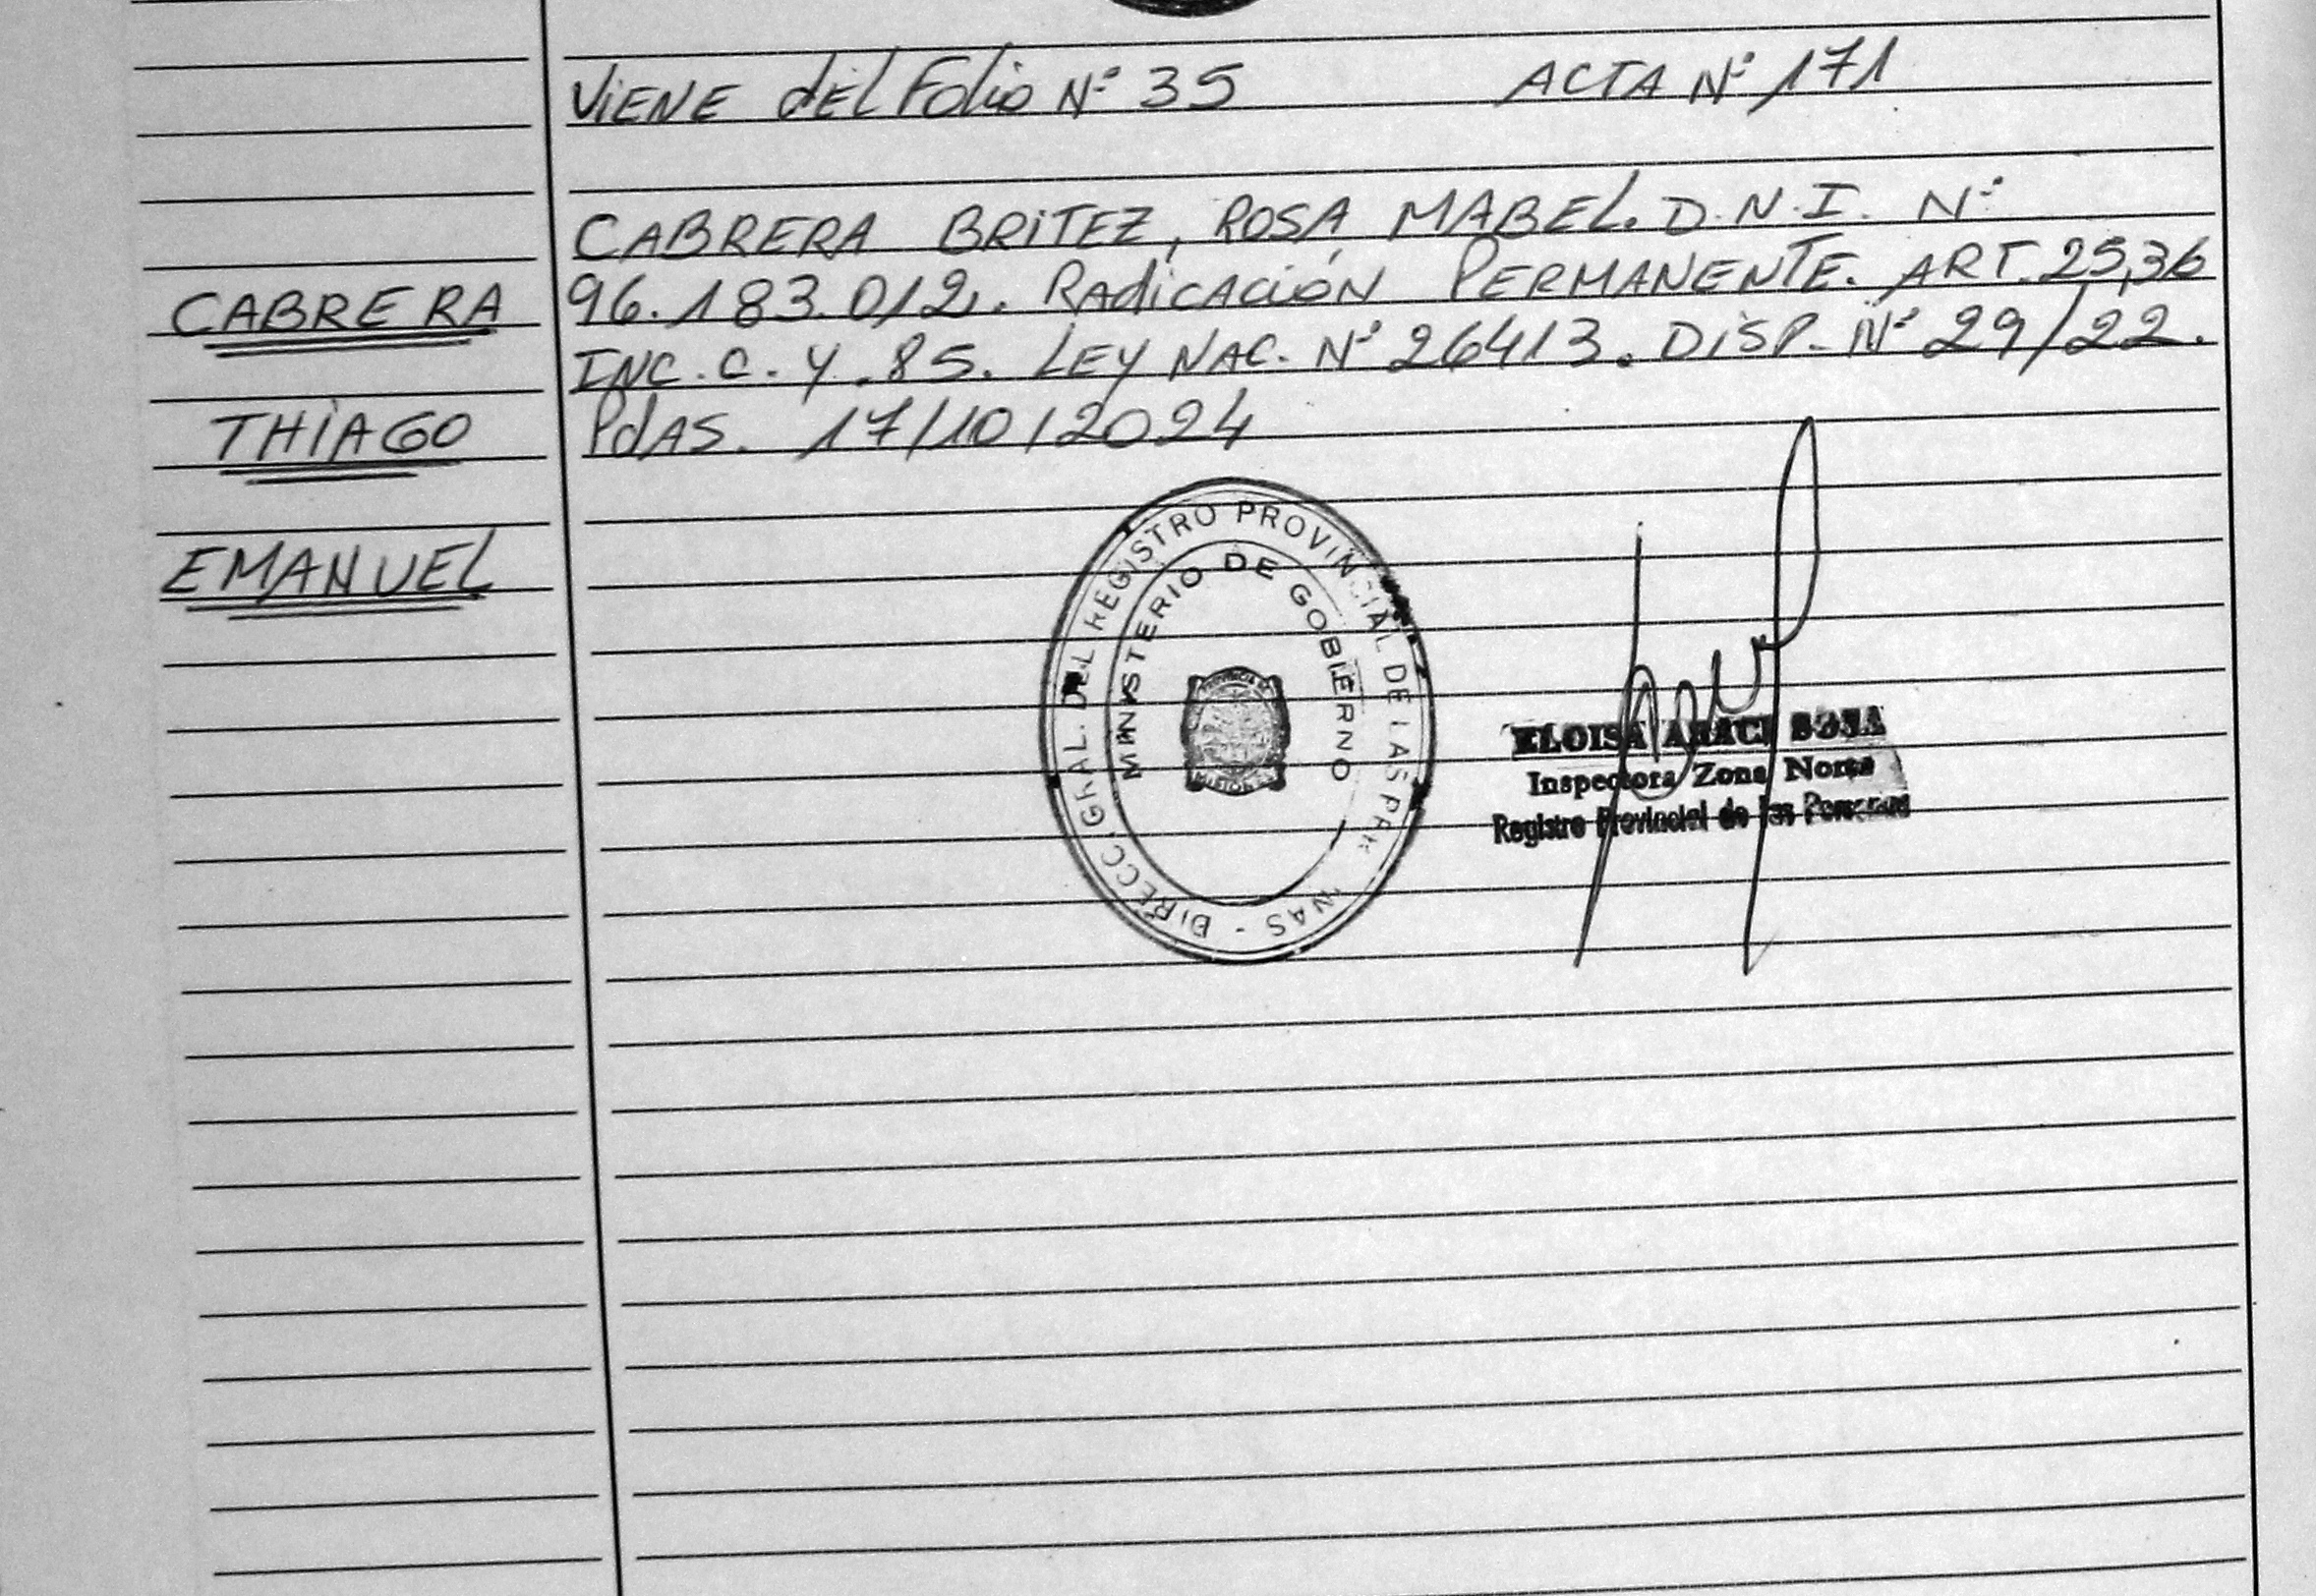 ViENE dEL FoLio Nº 35 ACTA Nº 171
CABRERA BRiTEZ, ROSA MABEL. D.N.I. Nº
96.183.012. RAdiCACiÓN PERMANENTE. ART. 25,36
INC. C. Y. 85. LEY NAC. Nº 26413. DiSP. Nº 29/22.
PdAS. 17/10/2024
CABRERA
THiAGO
EMANUEL
DIRECC. GRAL. DEL REGISTRO PROVINCIAL DE LAS PERSONAS -
MINISTERIO DE GOBIERNO
PROVINCIA DE
MISIONES
ELOISA ARACI SOSA
Inspectora Zona Norte
Registro Provincial de las Personas